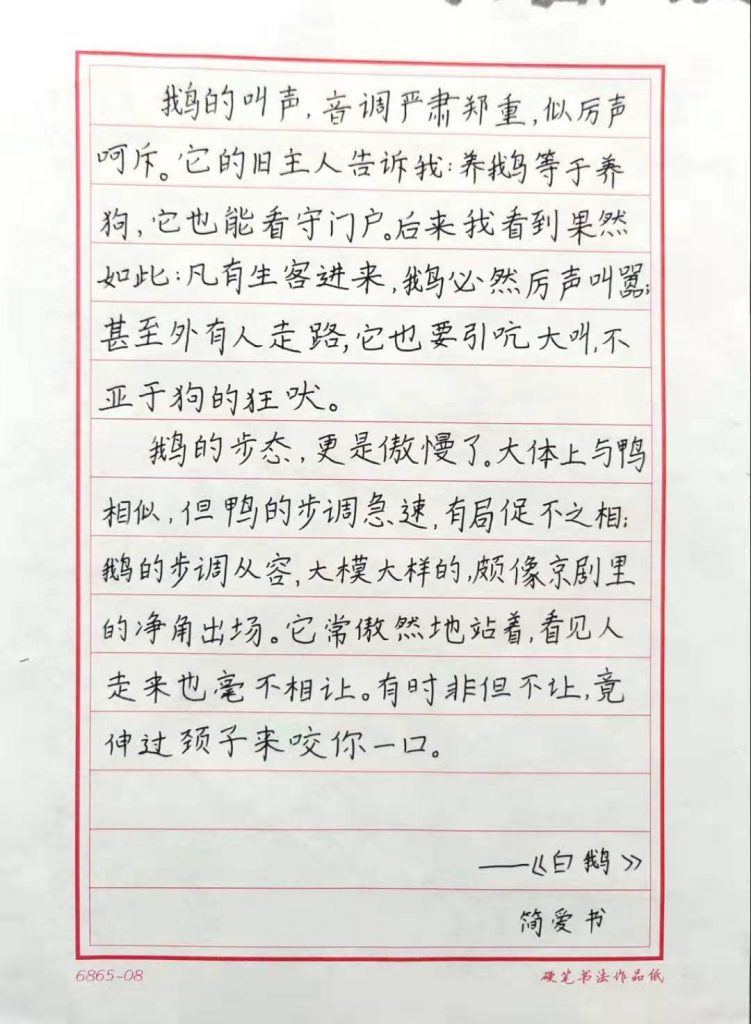 鹅的叫声，音调严肃郑重，似厉声
呵斥。它的旧主人告诉我：养鹅等于养
狗，它也能看守门户。后来我看到果然
如此：凡有生客进来，鹅必然厉声叫嚣；
甚至外有人走路，它也要引吭大叫，不
亚于狗的狂吠。
鹅的步态，更是傲慢了。大体上与鸭
相似，但鸭的步调急速，有局促不之相；
鹅的步调从容，大模大样的，颇像京剧里
的净角出场。它常傲然地站着，看见人
走来也毫不相让。有时非但不让，竟
伸过颈子来咬你一口。
——《白鹅》
简爱书
6865-08 硬笔书法作品纸